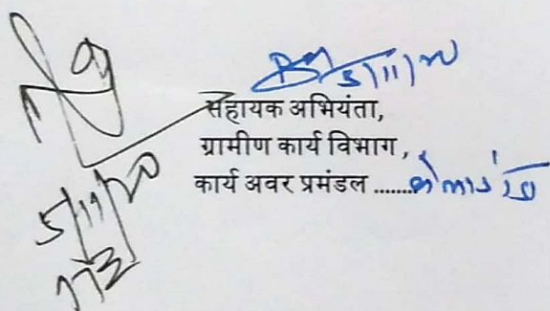 5/11/20
सहायक अभियंता,
ग्रामीण कार्य विभाग,
कार्य अवर प्रमंडल .......
5/11/20